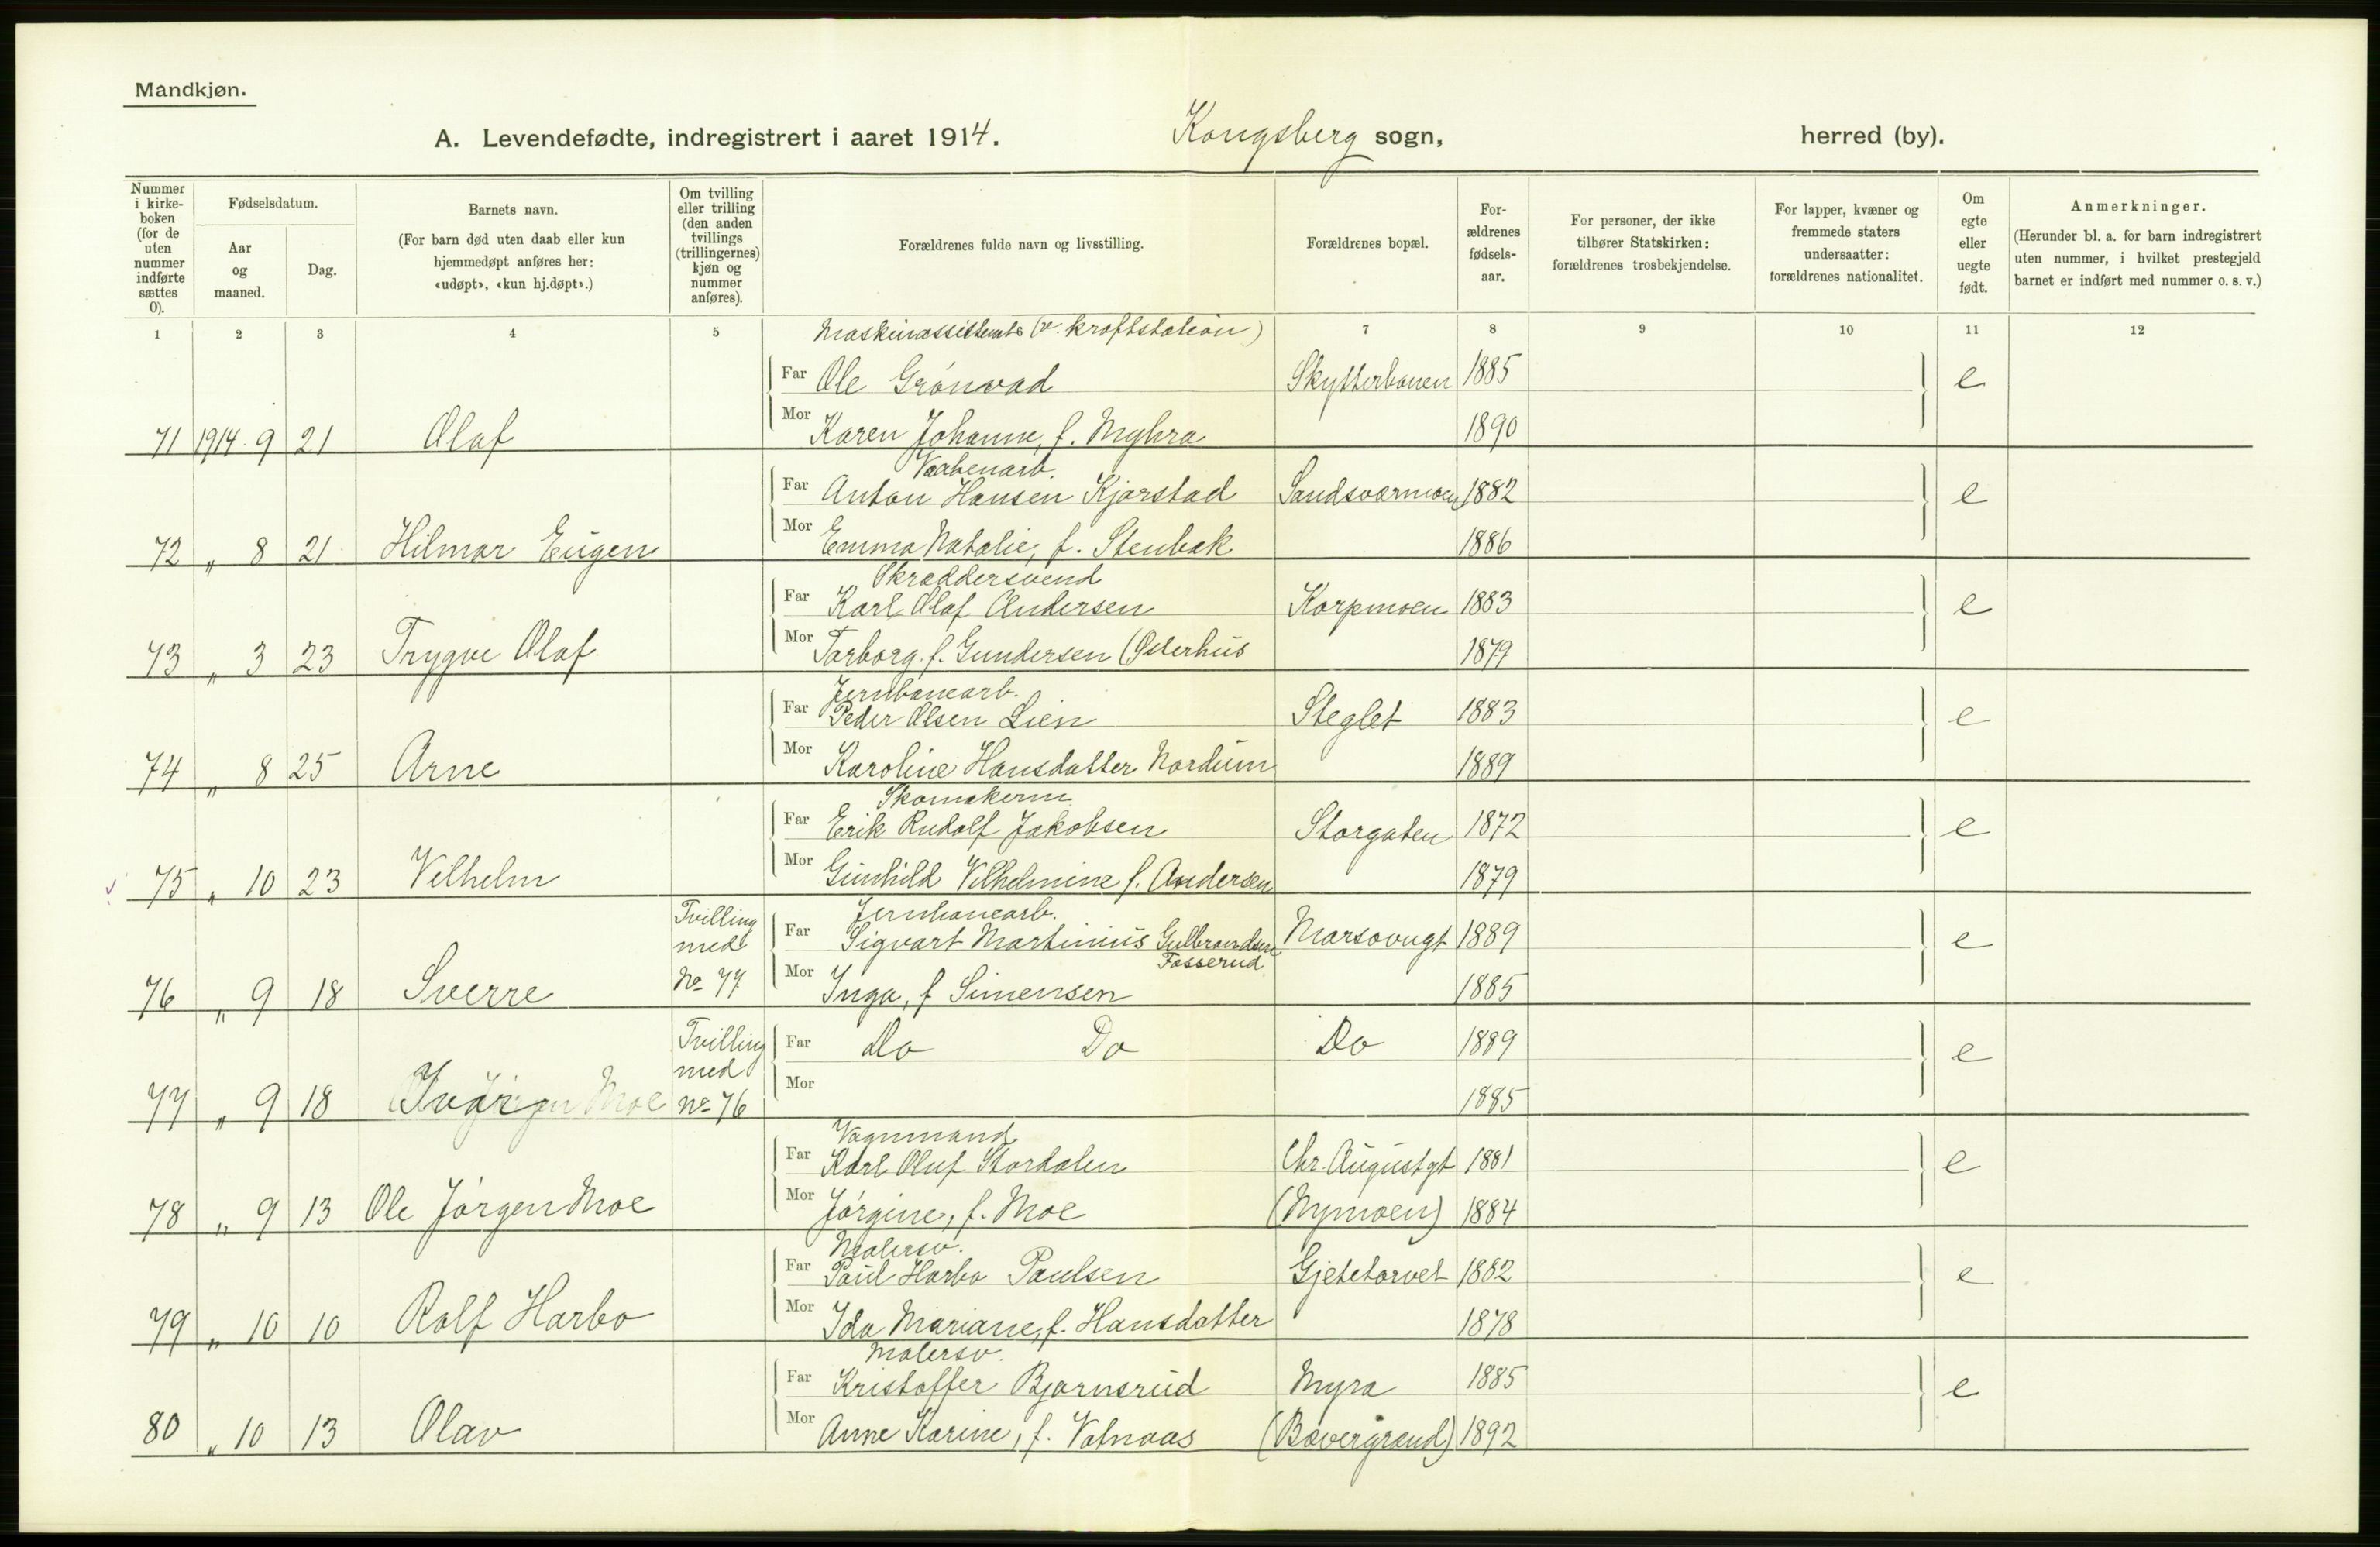 Mandkjøn.
A. Levendefødte, indregistrert i aaret 1914. Kongsberg sogn, herred (by).
Nummer i kirke-boken (for de uten nummer indførte sættes 0).
Fødselsdatum.
Aar og maaned.
Dag.
Barnets navn.
(For barn død uten daab eller kun hjemmedøpt anføres her: «udøpt», «kun hj.døpt».)
Om tvilling eller trilling (den anden tvillings (trillingernes) kjøn og nummer anføres).
Forældrenes fulde navn og livsstilling.
Forældrenes bopæl.
For-ældrenes fødsels-aar.
For personer, der ikke tilhører Statskirken: forældrenes trosbekjendelse.
For lapper, kvæner og fremmede staters undersaatter: forældrenes nationalitet.
Om egte eller uegte født.
Anmerkninger.
(Herunder bl. a. for barn indregistrert uten nummer, i hvilket prestegjeld barnet er indført med nummer o. s. v.)
1 2 3 4 5 7 8 9 10 11 12
Maskinassistent (v. kraftstation)
Far Ole Grönvad Skytterbanen 1885 e
Mor Karen Johanne, f. Myhra 1890
71 1914 9 21 Olaf
Vaabenarb.
Far Anton Hansen Kjørstad Sandsværmoen 1882 e
Mor Emma Natalie, f. Stenbak 1886
72 " 8 21 Hilmar Eugen
Skræddersvend
Far Karl Olaf Andersen Korpmoen 1883 e
Mor Torborg f. Gundersen (Østerhus 1879
73 " 3 23 Trygve Olaf
Jernbanearb.
Far Peder Olsen Lien Steglet 1883 e
Mor Karoline Hansdatter Nordum 1889
74 " 8 25 Arne
Skomakerm.
Far Erik Rudolf Jakobsen Storgaten 1872 e
Mor Gunhild Vilhelmine f. Andersen 1879
75 " 10 23 Vilhelm
Tvilling med No 77
Jernbanearb.
Far Sigvart Martinius Gulbrandsen Fosserud 1889 e
Mor Inga, f Simensen 1885
76 " 9 18 Sverre
Tvilling med No 76
Far Do Do Do 1889 e
Mor 1885
77 " 9 18 Ivar
Vognmand
Far Karl Oluf Stordalen Chr. Augustgt 1881 e
Mor Jörgine, f. Moe (Nymoen) 1884
78 " 9 13 Ole Jörgen Moe
Malersv.
Far Paul Harbo Paulsen Gjetetorvet 1882 e
Mor Ida Mariane, f. Hansdatter 1878
79 " 10 10 Rolf Harbo
Malersv.
Far Kristoffer Bjørnsrud Myra 1885 e
Mor Anne Karine, f. Vatnaas (Bævergrænd) 1892
80 " 10 13 Olav